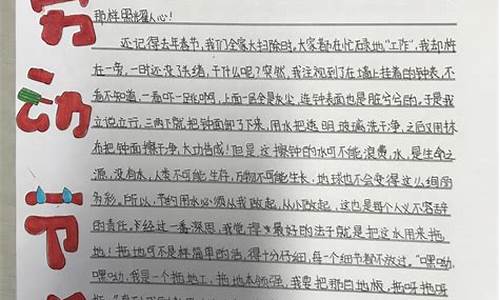 那样照耀人心!
还记得去年春节,我们全家大扫除时,大家都在忙碌地“工作”,我却杵
在一旁,一时还没了头绪,干什么呢?突然,我注视到了在墙上挂着的钟表,不
看不知道,一看吓一跳啊,上面一层全是灰尘,连钟表面也是脏兮兮的,于是我
立说立行,三两下就把钟面卸了下来,用水把透明玻璃洗干净,之后又用抹
布把钟面擦干净,大功告成!但是这擦钟的水可不能浪费,水,是生命之
源,没有水,人类不可能生存,万物不可能生长,地球也不会变得这么绚丽
多彩。所以,节约用水必须从我做起,从小做起,这也是每个人义不容辞
的责任。经过一番深思,我觉得最好的法子就是把这水用来拖
地!拖地可不是件简单的活,得十分仔细,每一个细节都不放过。“
嘿呦,我是一个拖地工,拖地本领强,我要把那白地板,拖呀拖呀